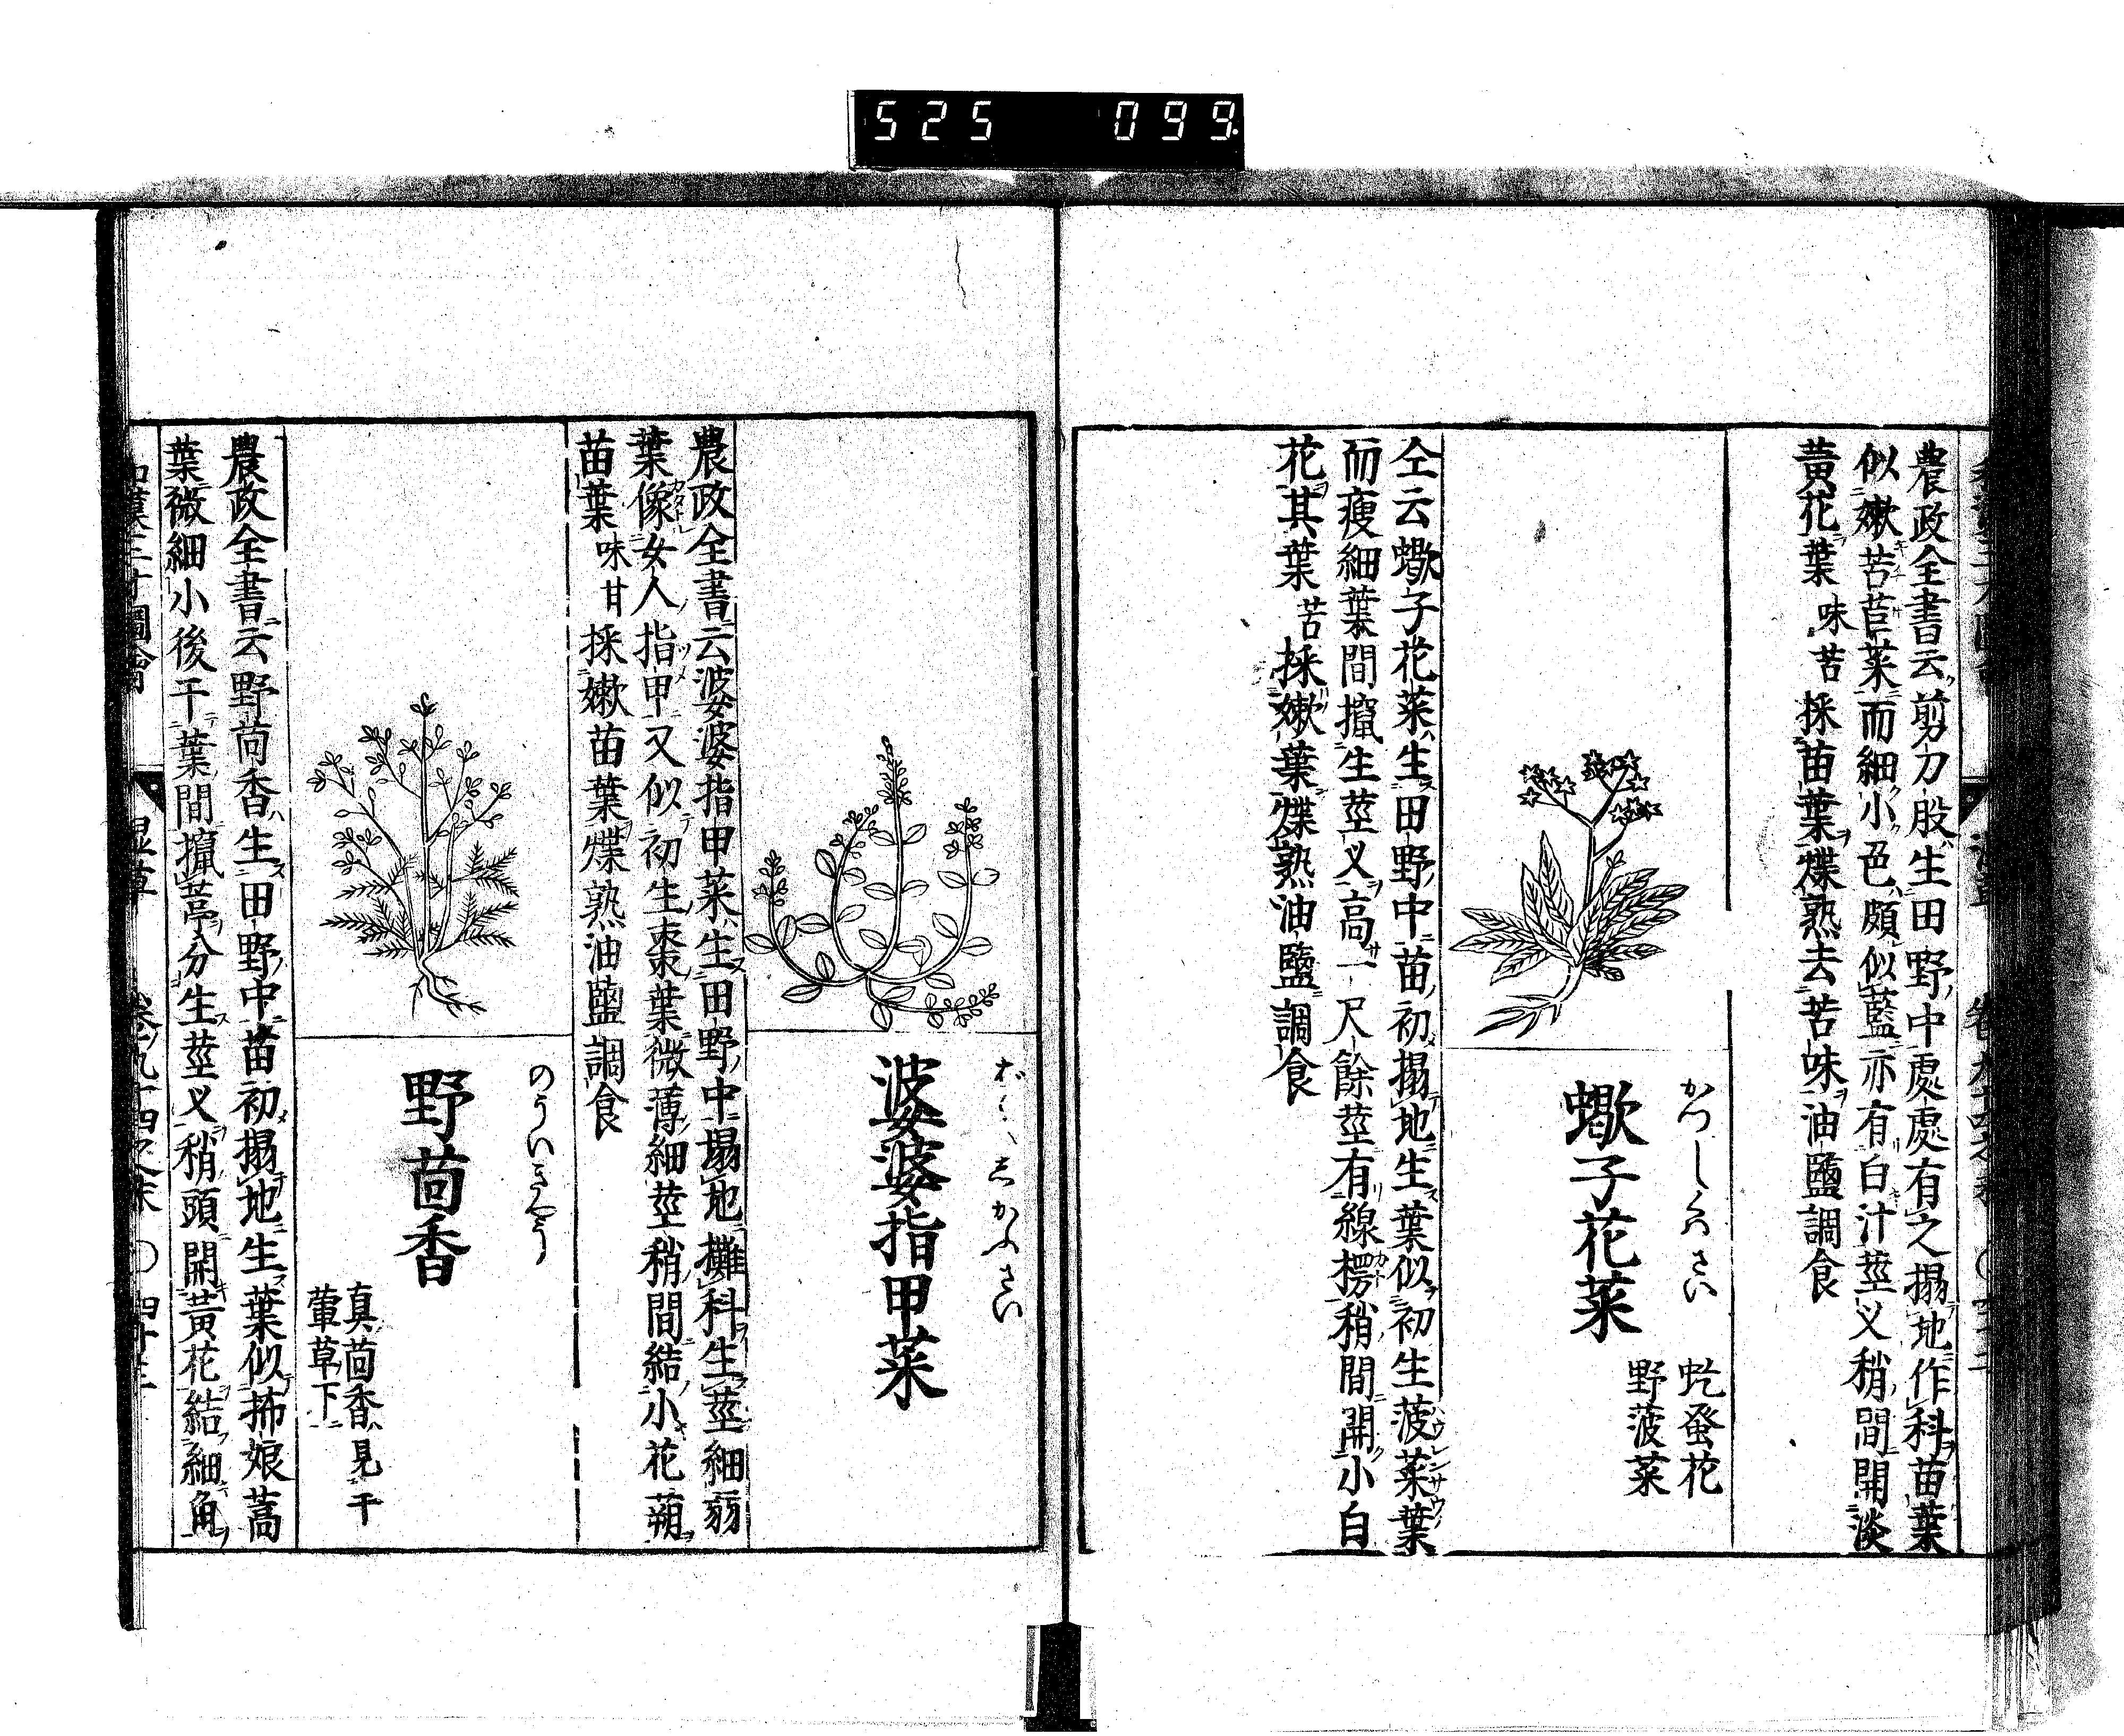 525 099
農政全書云剪刀股生田野中處處有之搨地作科苗葉
似嫩苦苣菜而細小色頗似藍亦有白汁莖叉稍間開淡
黃花葉味苦採苗葉煠熟去苦味油鹽調食
かつしくはさい
蠍子花菜
虼蚤花
野菠菜
仝云蠍子花菜生田野中苗初搨地生葉似初生菠菜葉
而瘦細葉間攛生莖叉高一尺餘莖有線楞稍間開小白
花其葉苦採嫩葉煠熟油鹽調食
ばゝしかふさい
婆婆指甲菜
農政全書云婆婆指甲菜生田野中塌地攤科生莖細弱
葉像女人指甲又似初生棗葉微薄細莖稍間結小花蒴
苗葉味甘採嫩苗葉煠熟油鹽調食
のういきやう
野茴香
真茴香見于
葷草下
農政全書云野茴香生田野中苗初搨地生葉似抪娘蒿
葉微細小後于葉間攛葶分生莖叉稍頭開黃花結細角
卷九十四之末 〇 四十三